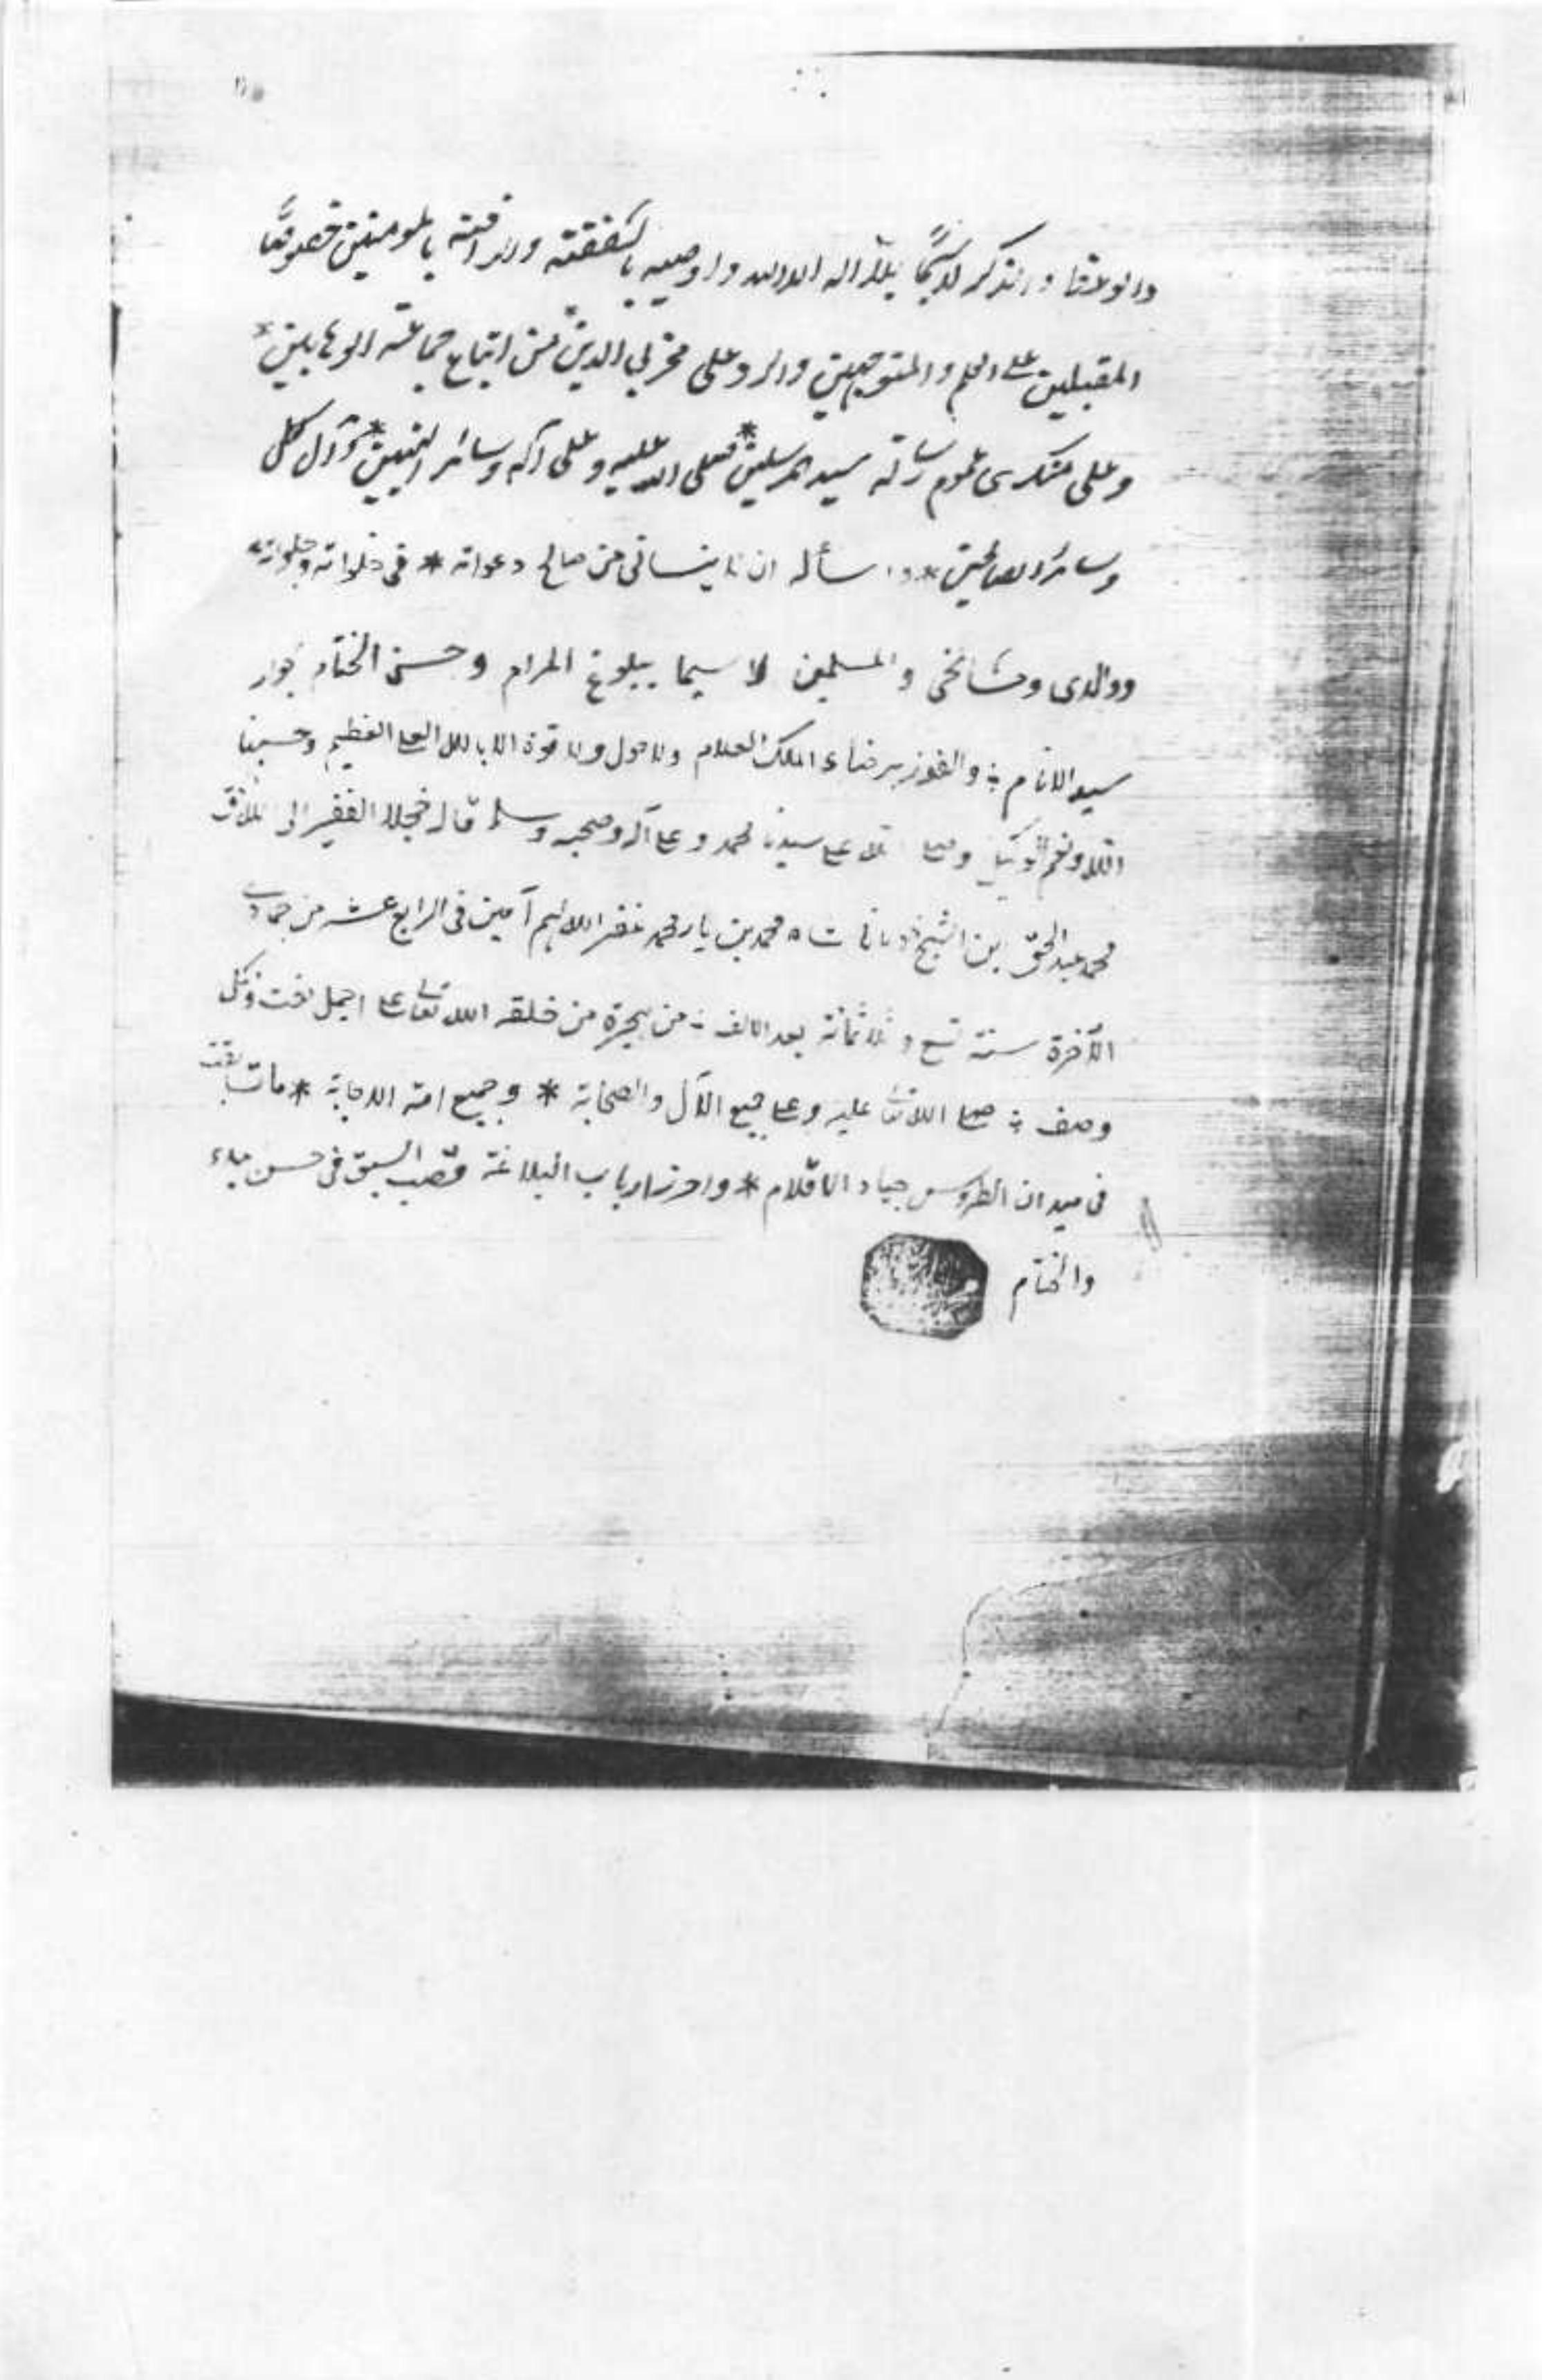 والذكر لا سيما بلا اله الا الله واوصيه بالشفقته والرافته بالمومنين خصوصًا
المقبلين على العلم والمتوجهين والرد على مخربي الدين من اتباع جماعته الوهابيين
وعلى منكرى عموم رسالته سيد المرسلين * صلى الله عليه وعلى آله وسائر النبيين * وآل كل
وسائر الصالحين * واسأله ان لا ينسانى من صالح دعواته * فى خلواته وجلواته
ووالدى ومشائخى والمسلمين لا سيما ببلوغ المرام وحسن الختام بجوار
سيد الانام ؛ والفوز برضاء الملك العلام ولا حول ولا قوة الا بالله العلى العظيم وحسبنا
الله ونعم الوكيل وصلى الله على سيدنا محمد وعلى آله وصحبه وسلم قاله الفقير الى
محمد عبد الحق بن الشيخ شاه محمد بن يار محمد غفر الله لهم آمين فى الرابع عشر من جمادى
الآخرة سنة تسع وثلاثمائة بعد الالف ؛ من هجرة من خلقه الله تعالى على اجمل نعت وكل
وصف ؛ صلى الله تعالى عليه وعلى جميع الآل والصحابة * وجميع امته الاجابة * ما تسابقت
فى ميدان الطروس جياد الاقلام * واحرز ارباب البلاغة قصب السبق فى حسن بداء
والختام